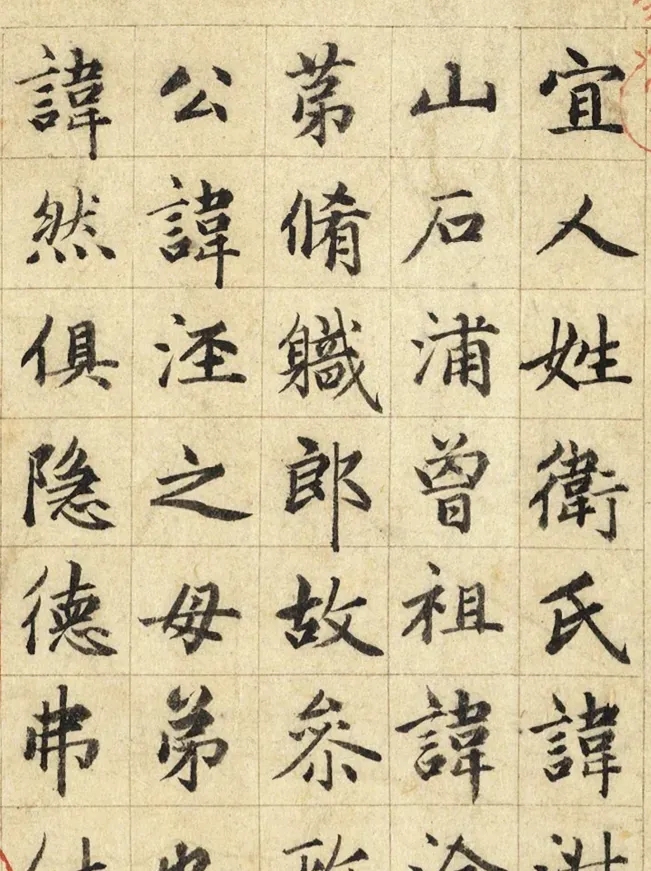 宜人姓衛氏諱淑
山石浦曾祖諱
苐脩職郎故叅政
公諱涇之母弟也
諱然俱隐德弗仕